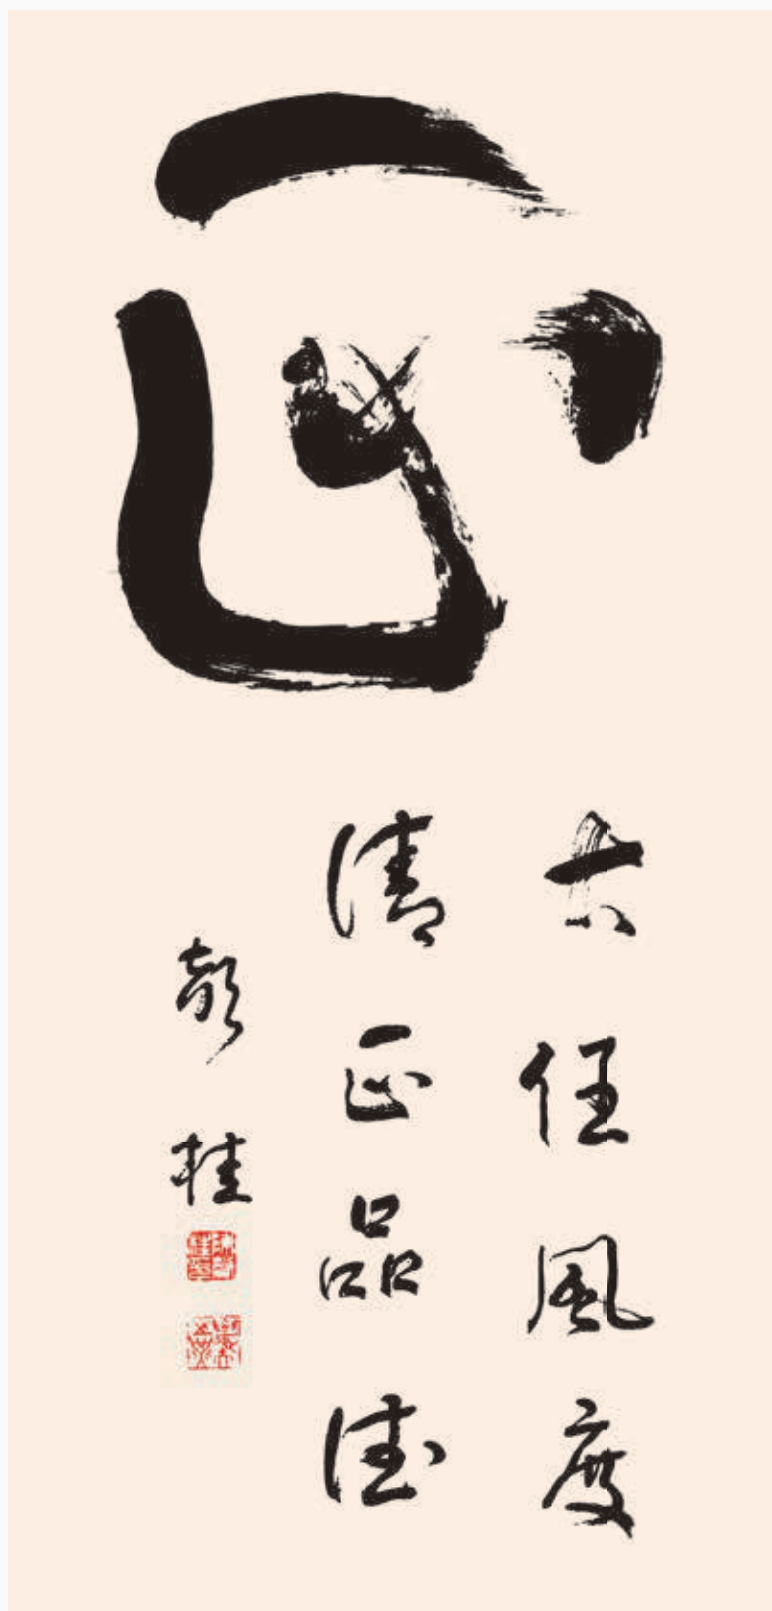 正
任風度
清正品德
桂